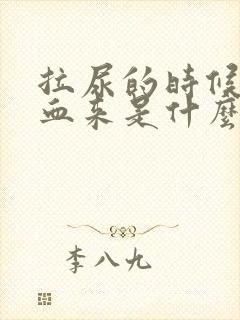 拉尿的時候
血来是什麼
李八九